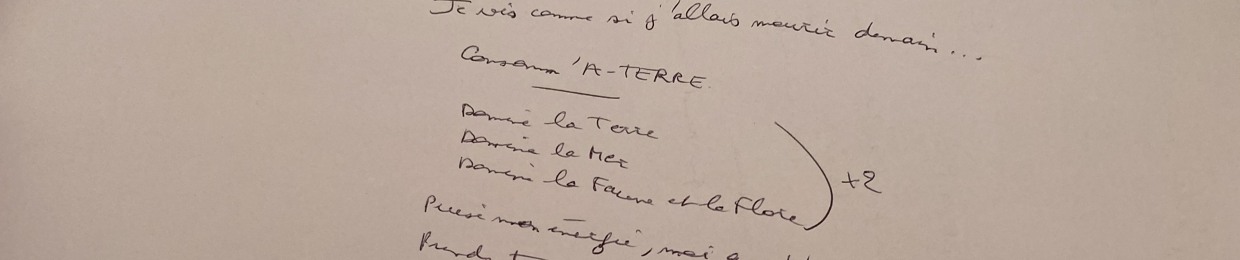 Je vis comme si j'allais mourir demain...
Consomm 'A-TERRE
Domine la Terre
Domine la Mer
Domine la Faune et la Flore
x2
Puise mon énergie, moi
Prends